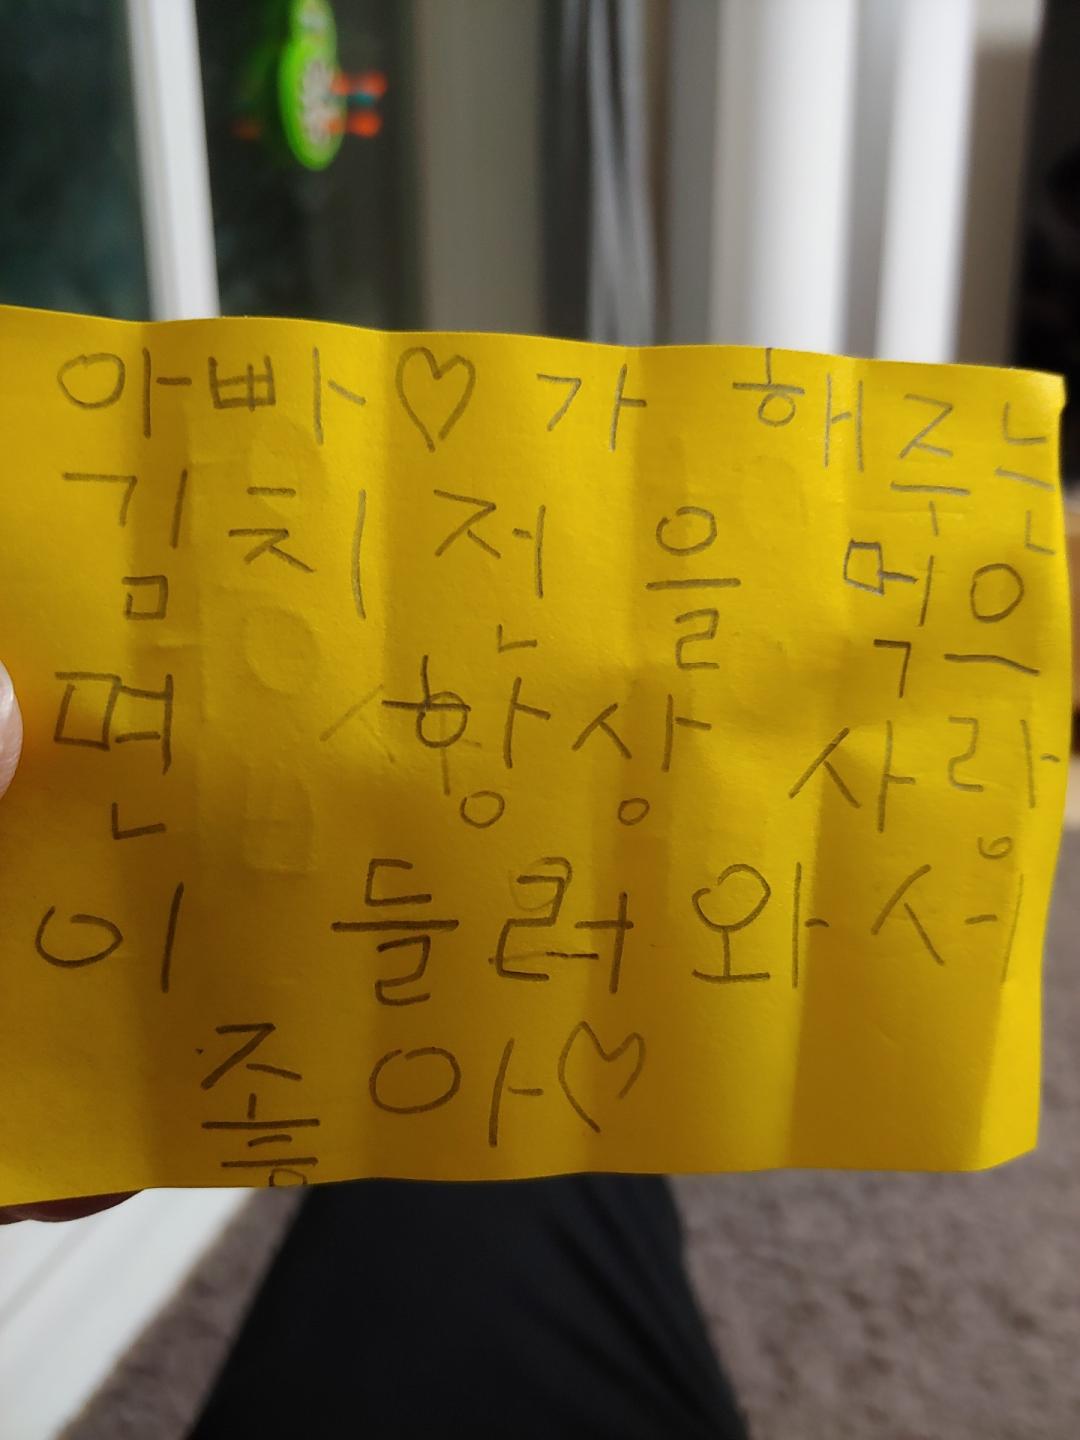 아빠♡가 해준
김치전을 먹으
면 항상 사랑
이 들러와서
좋아♡